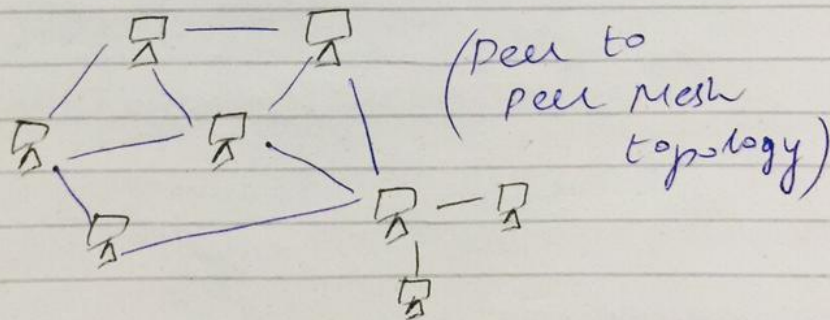 (Peer to
peer Mesh
topology)